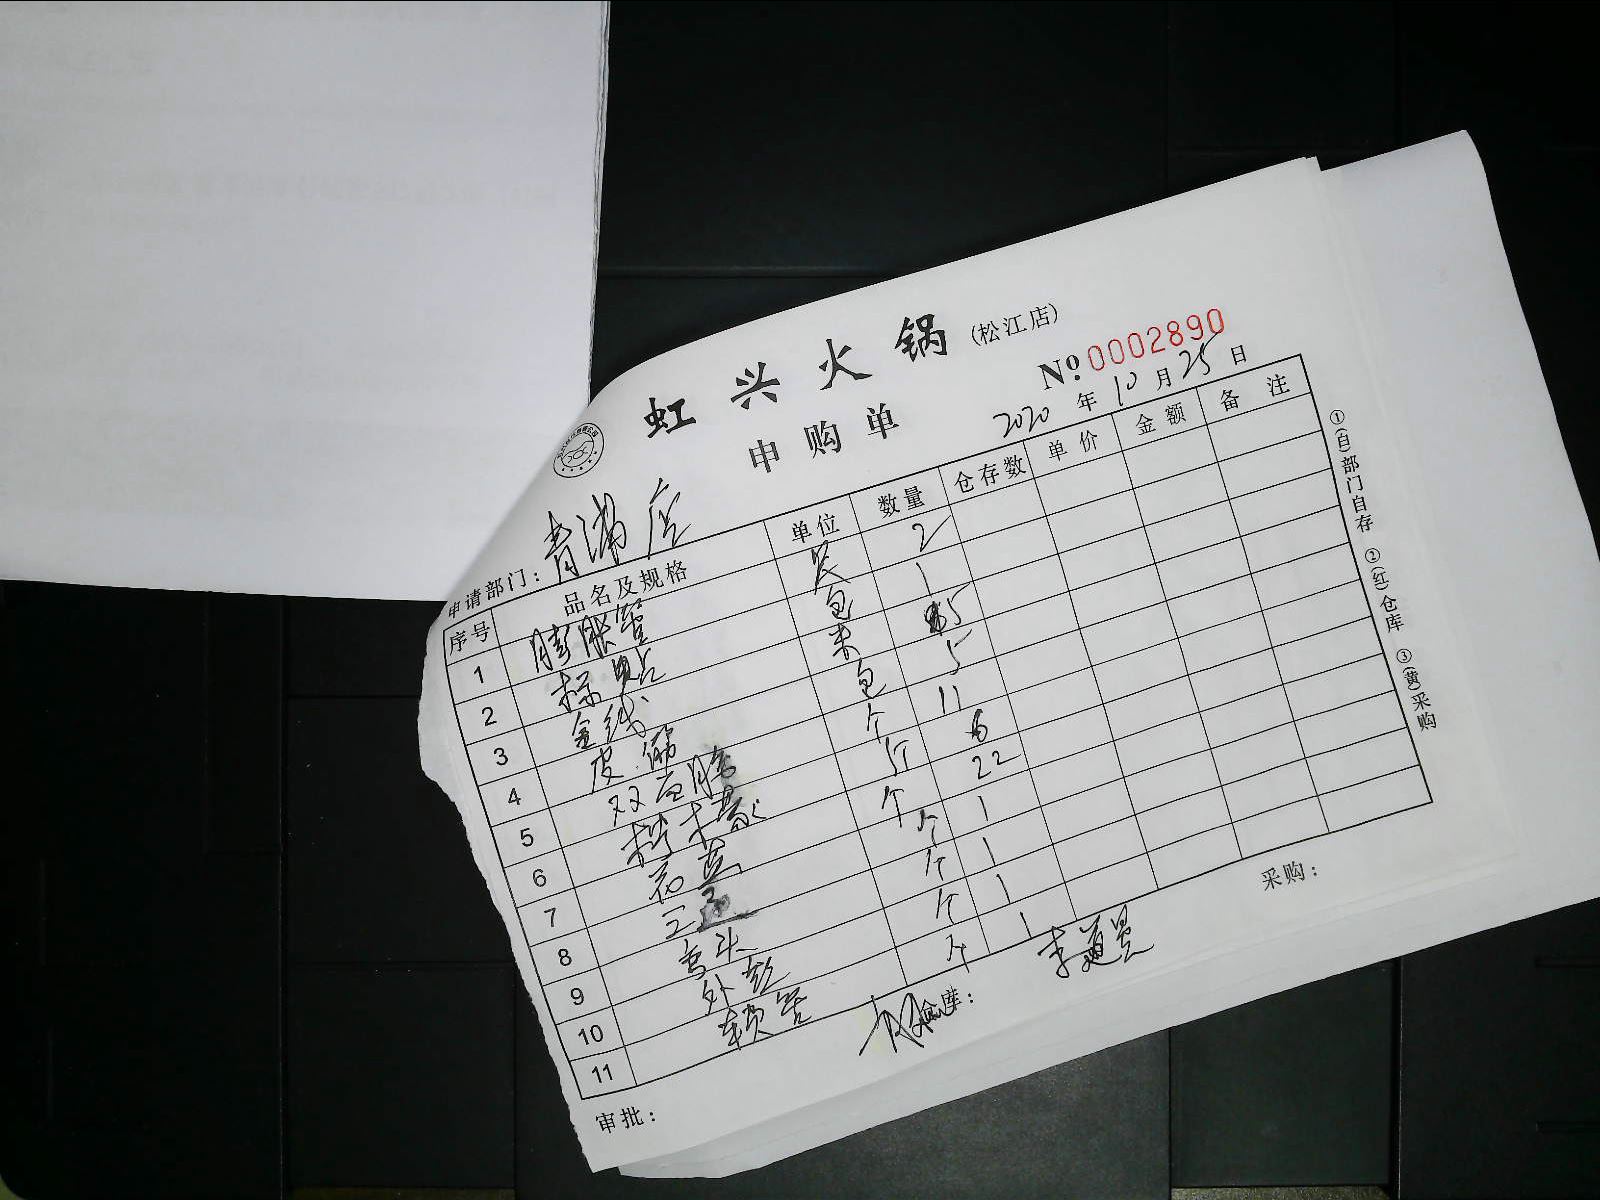 虹兴火锅(松江店)
申购单
№0002890
2020年10月25日
申请部门:青浦店
序号 品名及规格 单位 数量 仓存数 单价 金额 备注
1 膨胀管 包 2
2 标贴 包 1
3 金线 米 5
4 皮筋 包 5
5 双面胶 个 11
6 个 6
7 个 22
8 个 1
9 弯头 个 1
10 外丝 个 1
11 软管 个 1
审批: 仓库: 李道昱 采购:
①(白)部门自存 ②(红)仓库 ③(黄)采购